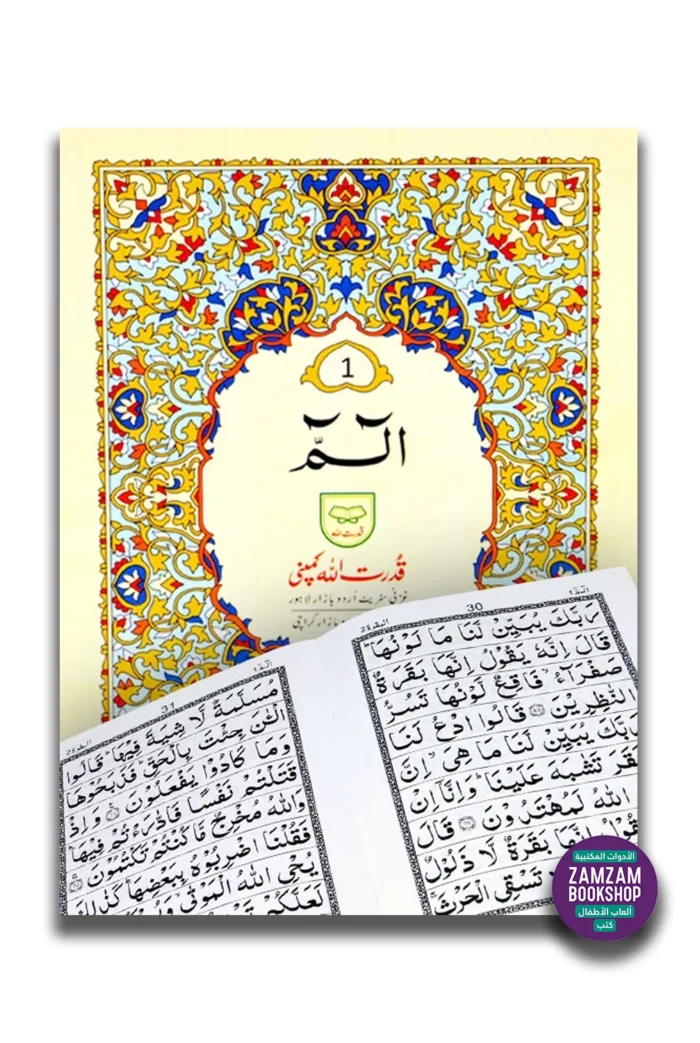 1
الٓمّٓ
قدرت اللہ
قُدرت اللہ کمپنی
غزنی سٹریٹ اُردو بازار لاہور
بازار کراچی
الٓمّٓ ١
30
البقرة ٢
رَبَّكَ يُبَيِّنْ لَّنَا مَا لَوْنُهَا ؕ
قَالَ اِنَّهٗ يَقُوْلُ اِنَّهَا بَقَرَةٌ
صَفْرَآءُ ۙ فَاقِعٌ لَّوْنُهَا تَسُرُّ
النّٰظِرِيْنَ ۝ قَالُوا ادْعُ لَنَا
رَبَّكَ يُبَيِّنْ لَّنَا مَا هِىَ ۙ اِنَّ
تَشٰبَهَ عَلَيْنَا ؕ وَاِنَّاۤ اِنْ
اللّٰهُ لَمُهْتَدُوْنَ ۝ قَالَ
اِنَّهَا بَقَرَةٌ لَّا ذَلُوْلٌ
تَسْقِى الْحَرْثَ ۚ
الٓمّٓ ١
31
البقرة ٢
مُسَلَّمَةٌ لَّا شِيَةَ فِيْهَا ؕ قَالُوا
الْـٰٔنَ جِئْتَ بِالْحَقِّ ؕ فَذَبَحُوْهَا
وَمَا كَادُوْا يَفْعَلُوْنَ ۝ وَاِذْ
قَتَلْتُمْ نَفْسًا فَادّٰرَءْتُمْ فِيْهَا ؕ
وَاللّٰهُ مُخْرِجٌ مَّا كُنْتُمْ تَكْتُمُوْنَ ۝
فَقُلْنَا اضْرِبُوْهُ بِبَعْضِهَا ؕ كَذٰلِكَ
يُحْىِ اللّٰهُ الْمَوْتٰى ۙ
لَعَلَّكُمْ
الأدوات المكتبية
ZAMZAM
BOOKSHOP
ألعاب الأطفال
كتب